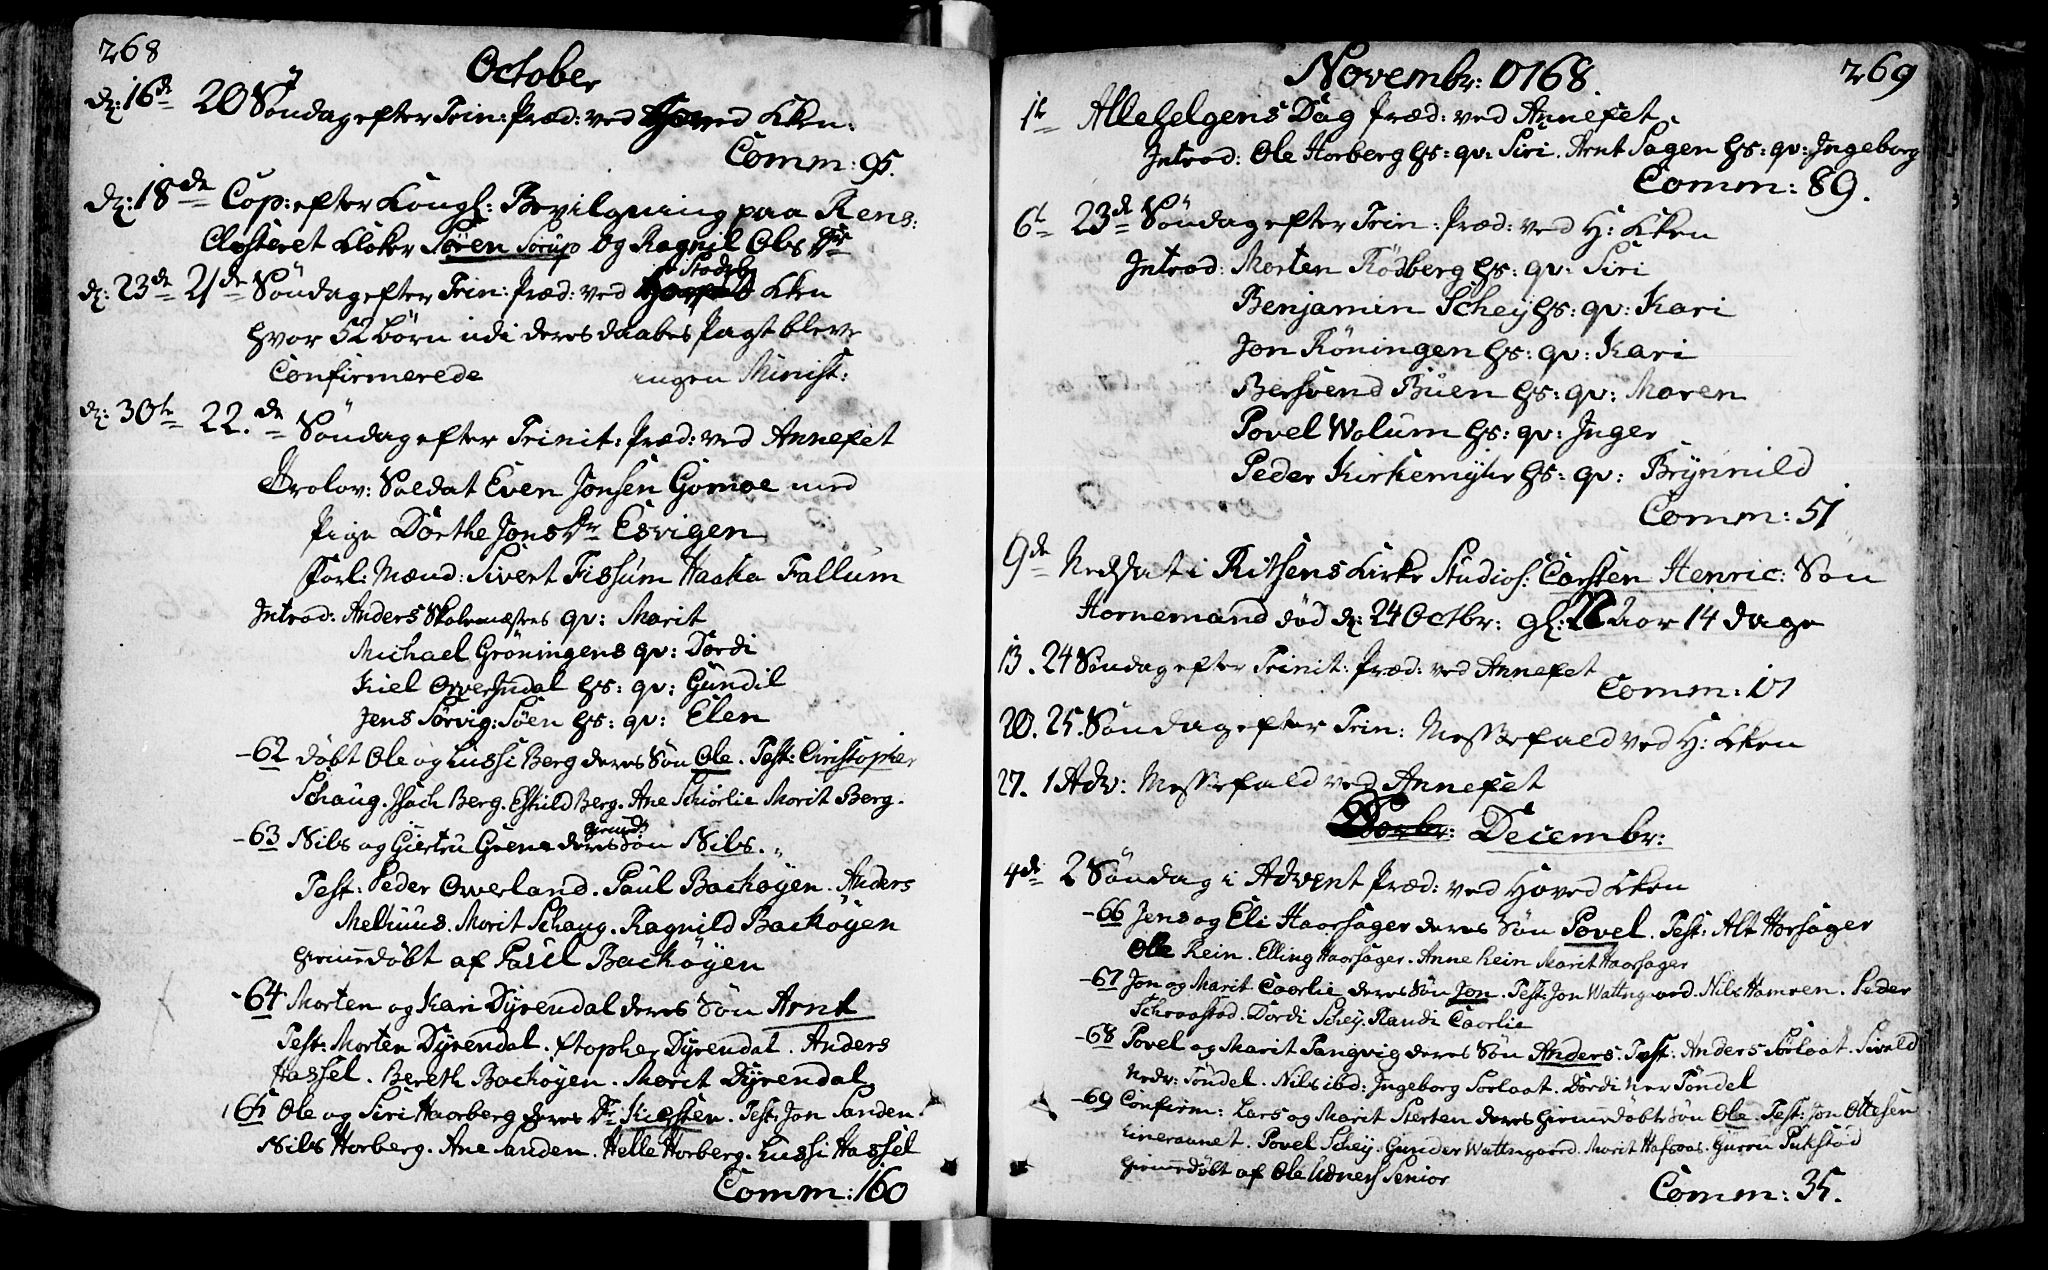 268
October
d: 16de 20 Söndag efter Trin: Præd: ved Hoved Kken:
Comm: 95.
d: 18de Cop: efter Kongl: Bevilgning paa Rens:
Closteret Kloker Sören Sorup og Ragnil Obs
d: 23de 21de Söndag efter Trin: Præd: ved Stadsb Kken
hvor 52 börn udi deres daabes Pagt bleve
Confirmerede ingen Minist:
d: 30te 22.de Söndag efter Trinit: Præd: ved Annexet
Trolov: Soldat Even Jonsen Gomoe med
Pige Dorthe Jons Dr Esvigen
Forl: Mænd: Sivert Fissum Haaka Fallum
Introd: Anders Skolemæstres qv: Marit
Michael Gröningens qv: Dordi
Kiel Overjndal hs: qv: Gundil
Jens Sörvig: Söen hs: qv: Elen
-62 döbt Ole og Lussi Berg deres Sön Ole. Test: Christopher
Schaug. Jsach Berg. Eskild Berg. Ane Schiorlie Morit Berg.
-63 Nils og Giertru Grena deres Sön Nils.
Test: Peder Owerland. Paul Backöyen. Anders
Melhuus. Morit Schaug. Ragnild Backöyen
hiemedöbt af Paul Backöyen
-64 Morten og Kari Dyrendal deres Sön Arnt
Test: Morten Dyrendal. Stopher Dyrendal. Anders
Hassel. Bereth Backöyen. Morit Dyrendal
165 Ole og Siri Haorberg deres Dr Kiersten. Test: Jon Sanden.
Nils Horberg. Ane Sanden. Helle Horberg. Lussi Hassel
Comm: 160
Novembr: 1768. 269
1t Allehelgens Dag Præd: ved Annexet
Introd: Ole Horberg hs: qv: Siri. Arnt Sagen hs: qv: Jngeborg
Comm: 89.
6t 23de Söndag efter Trin: Præd: ved H: Kken
Introd: Morten Rödberg hs: qv: Siri
Benjamin Schey hs: qv: Kari
Jon Röningen hs: qv: Kari
Bersvend Buen hs: qv: Maren
Povel Wolum hs: qv: Jnger
Peder Kirkemyhr hs: qv: Brynnild
Comm: 51
9de Nedsat i Ritsens Kirke Studios: Carsten Henric: Son
Hornemand död d: 24 Octbr: gl: 22 Aar 14 dage
13. 24 Söndag efter Trinit: Præd: ved Annexet
Comm: 101
20. 25. Söndag efter Trin: Messefald ved H: Kken
27. 1 Adv: Messefald ved Annexet
Decembr:
4de 2 Söndag i Advent Præd: ved Hoved Kken
-66 Jens og Eli Haorsager deres Sön Povel. Test: Alt Horsager
Ole Rein. Elling Haorsager. Anne Rein Marit Haorsager
-67 Jon og Marit Caorlie deres Sön Jon. Test: Jon Wattngaard. Nils Hamren. Peder
Schraastad. Dordi Schey. Randi Caorlie
-68 Povel og Marit Tangvig deres Sön Anders. Test: Anders Sorlaat. Sivald
Nedr: Töndel. Nils ibd: Jngeborg Sorlaat. Dordi Ner Töndel
-69 Confirm: Lars og Marit Sterten deres hiemedöbte Sön Ole. Test: Jon Ottesen
Eineraunet. Povel Schey. Gunder Wattngaard. Morit Hafsaas. Guren Pukstad
hiemedöbt af Ole Udness Senior
Comm: 35.